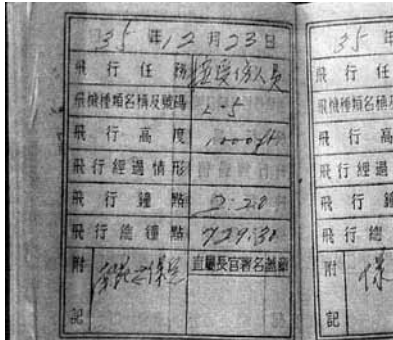 35 年 12 月 23 日
飛行任務
飛機種類名稱及號碼 L-5
飛行高度 1000ft
飛行經過情形
飛行鐘點 2:20
飛行總鐘點 929:30
附記
直屬長官署名蓋章
35 年
飛行任
飛機種類名稱及
飛行高
飛行經過
飛行鐘
飛行總
附記